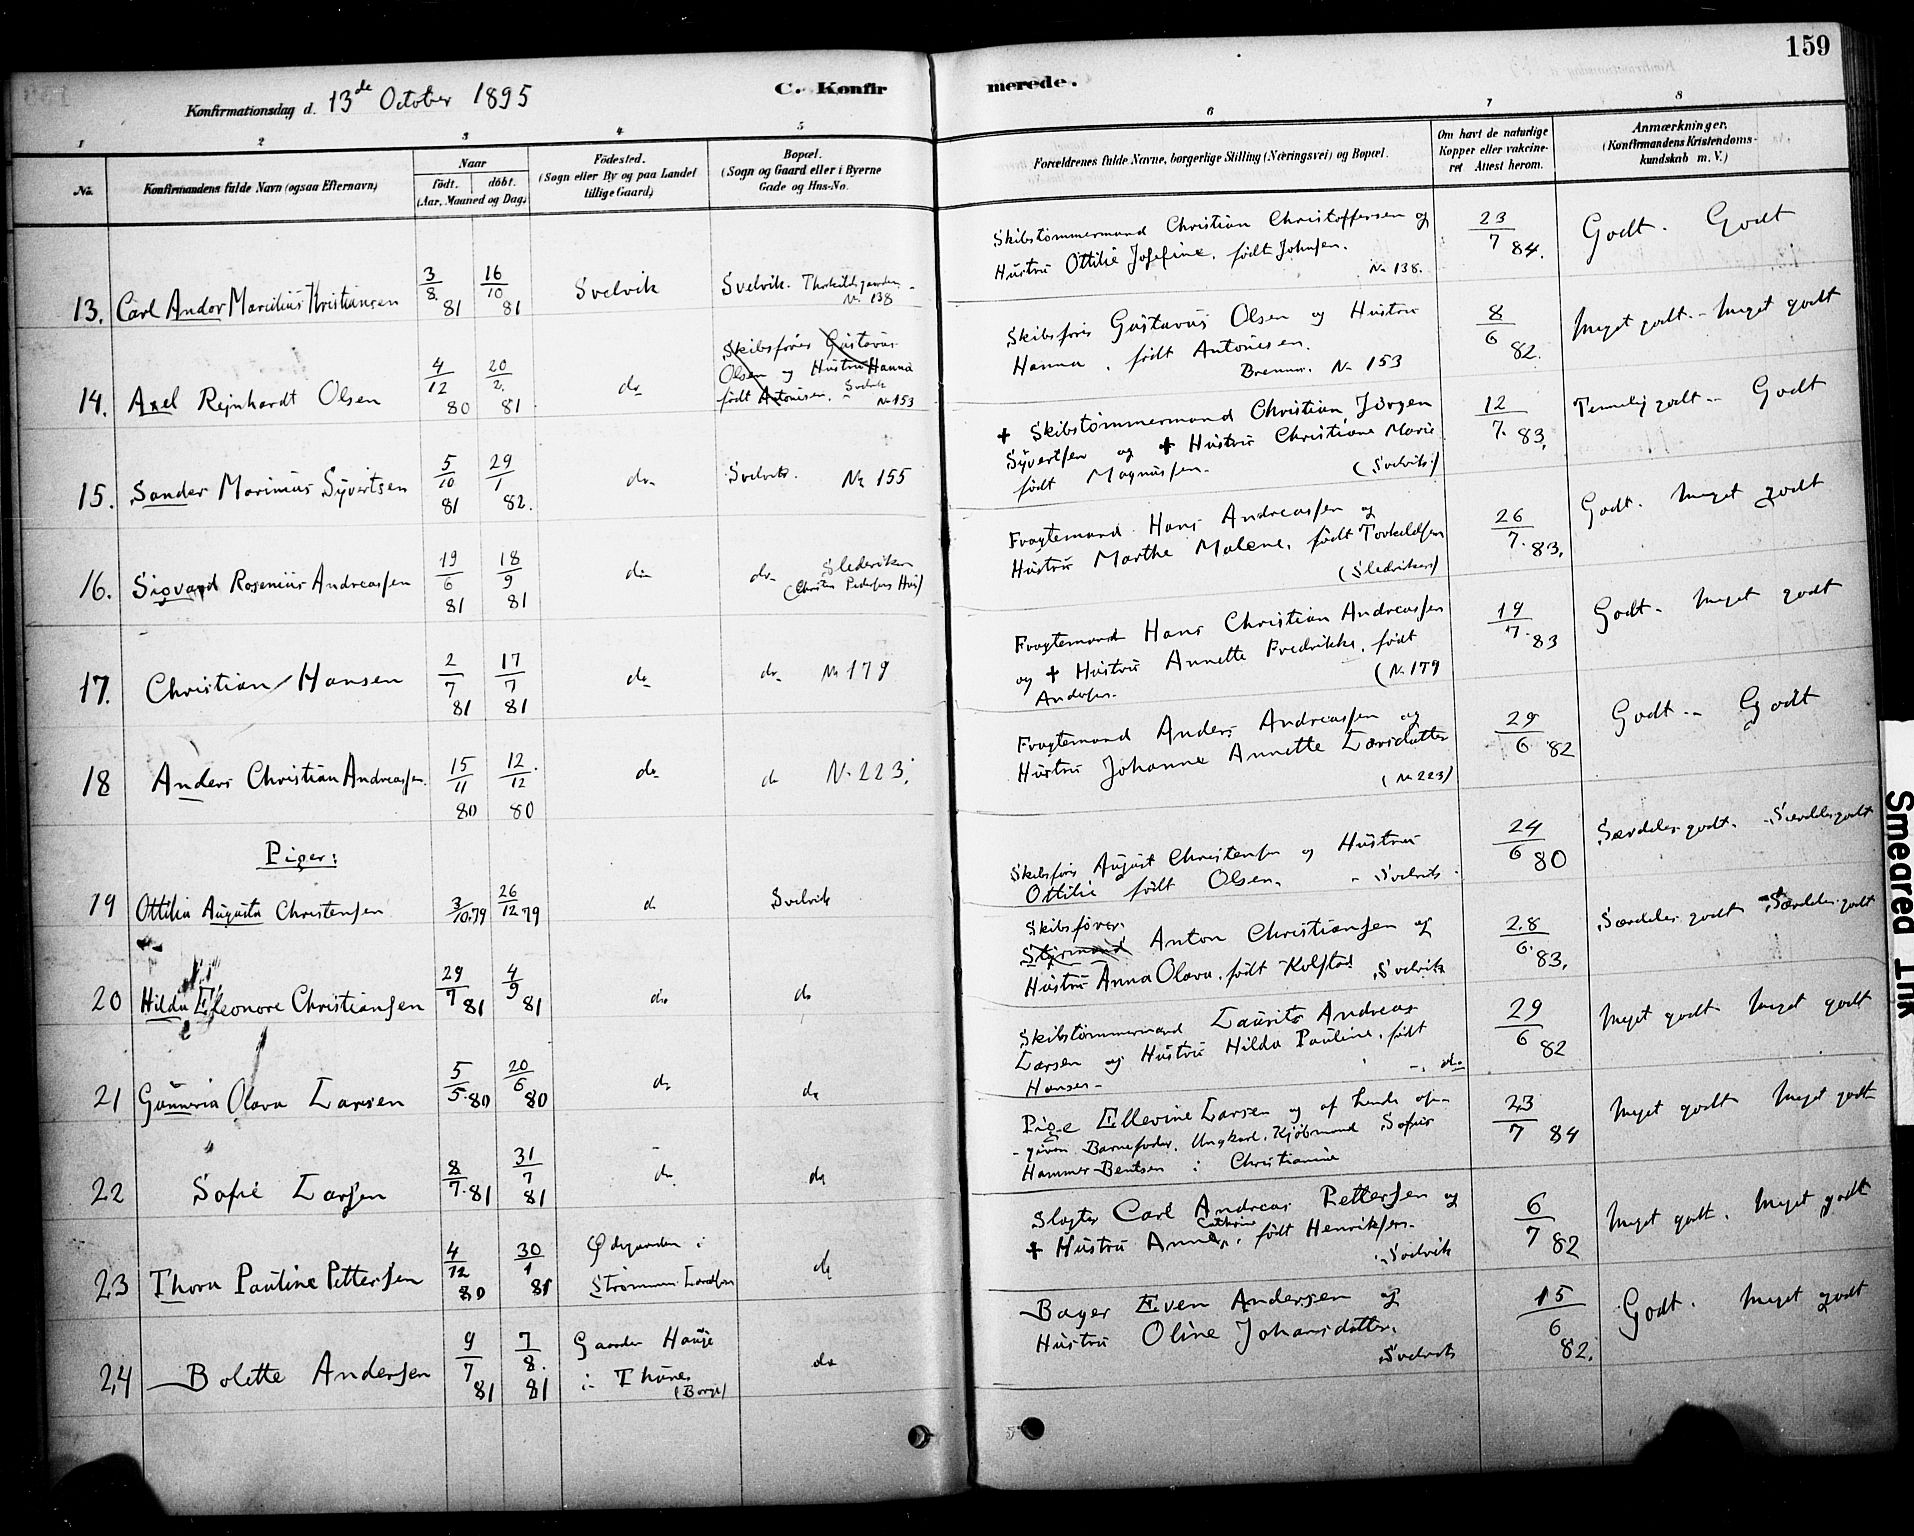 159
Konfirmationsdag d. 13de October 1895
C. Konfirmerede.
1 2 3 4 5 6 7 8
No.
Konfirmandens fulde Navn (ogsaa Efternavn)
Naar
født. døbt.
(Aar, Maaned og Dag)
Fødested.
(Sogn eller By og paa Landet
tillige Gaard)
Bopæl.
(Sogn og Gaard eller i Byerne
Gade og Hus-No.
Forældrenes fulde Navne, borgerlige Stilling (Næringsvei) og Bopæl.
Om havt de naturlige
Kopper eller vakcine-
ret Attest herom.
Anmærkninger.
(Konfirmandens Kristendoms-
kundskab m. V.)
13. Carl Andor Marcilius Kristiansen 3/8 81 16/10 81 Svelvik Svelvik.
No 138
Skibstømmermand Christian Christoffersen og
Hustru Ottilie Josefine, født Johnsen.
No 138.
23/7 84. Godt. Godt
14. Axel Reinhardt Olsen 4/12 80 20/2. 81 do
Skibsfører Gustavus
Olsen og Hustru Hanna
født Antonisen. Svelvik
No 153
Skibsfører Gustavus Olsen og Hustru
Hanna, født Antonisen.
No 153
8/6 82. Meget godt. - Meget godt
15. Sander Marinius Syvertsen 5/10 81 29/1 82. do Svelvik. No 155
+ Skibstømmermand Christian Jørgen
Syvertsen og + Hustru Christiane Marie
født Magnussen. (Svelvik)
12/7. 83, Temmelig godt - Godt
16. Sigvard Rosenius Andreassen 19/6 81 18/9 81 do do
(Christen Pedersens Hus)
Fragtemand Hans Andreassen og
Hustru Marthe Malene, født Torkeldsen
26/7. 83, Godt. Meget godt
17. Christian Hansen 2/7 81 17/7 81 do do No 179
Fragtemand Hans Christian Andreassen
og + Hustru Annette Fredrikke, født
(No 179
19/7. 83 Godt - Meget godt
18 Anders Christian Andreassen 15/11 80 12/12 80 do do No 223.
Fragtemand Anders Andreassen og
Hustru Johanne Annette Larsdatter
(No 223)
29/6 82 Godt - Godt
Piger:
19 Ottilia Augusta Christensen 3/10.79 26/12 79 do Svelvik
Skibsfører August Christensen og Hustru
Ottilie født Olsen. - Svelvik
24/6 80 Særdeles godt. - Særdeles godt
20 Hilda Eleonore Christiansen 29/7 81 4/9 81 do do
Skibsfører
Styrmand Anton Christiansen og
Hustru Anna Olava, født Kolstad Svelvik
28/6. 83, Særdeles godt - Særdeles godt
21 Gunneria Olava Larsen 5/5.80 20/6 80 do do
Skibstømmermand Laurits Andreas
Larsen og Hustru Hilda Pauline, født
Hansen - do
29/6 82 Meget godt Meget godt
22 Sofie Larsen 8/7.81 31/7 81 do do
Pige Ellevine Larsen og af hende op-
given Barnefader, Ungkarl, Kjøbmand Sofus
Hammer-Bentsen i Christiania
23/7 84 Meget godt Meget godt
23 Thora Pauline Pettersen 4/12 80 30/1 81 Ødegaarden i
Strømm do
Slagter Carl Andreas Pettersen og
+ Hustru Anne Cathrine, født Henriksen.
Svelvik
6/7 82 Meget godt. Meget godt
24 Bolette Andersen 9/7 81 7/8. 81 Gaarden Hauge
i Thunes
(Borge) do
Bager Even Andersen og
Hustru Oline Johansdatter.
Svelvik
15/6 82. Godt. Meget godt
Smeared Ink